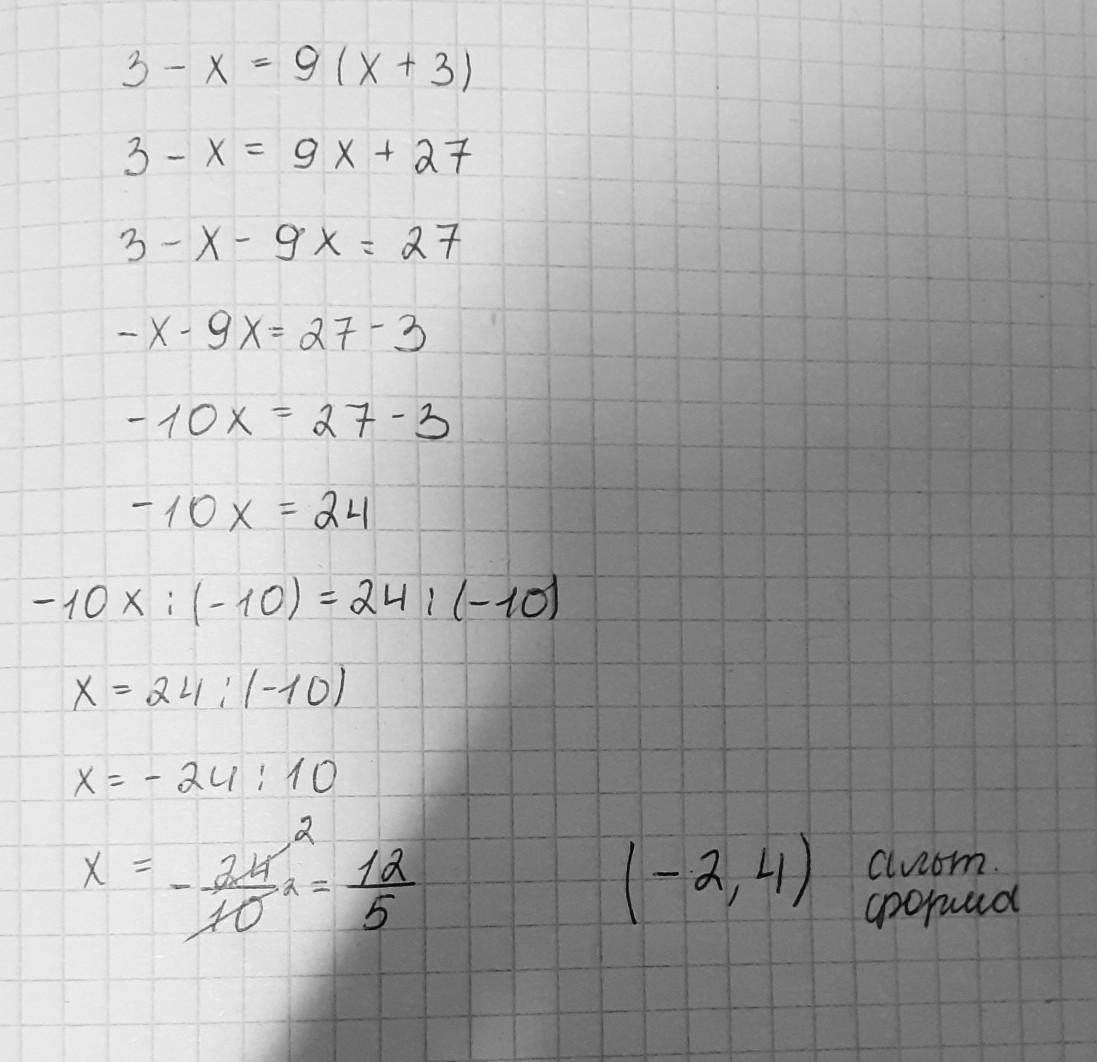 3 - x = 9(x + 3)
3 - x = 9x + 27
3 - x - 9x = 27
-x - 9x = 27 - 3
-10x = 27 - 3
-10x = 24
-10x : (-10) = 24 : (-10)
x = 24 : (-10)
x = -24 : 10
x = -24/10 2 2 = 12/5 (-2,4)
форма